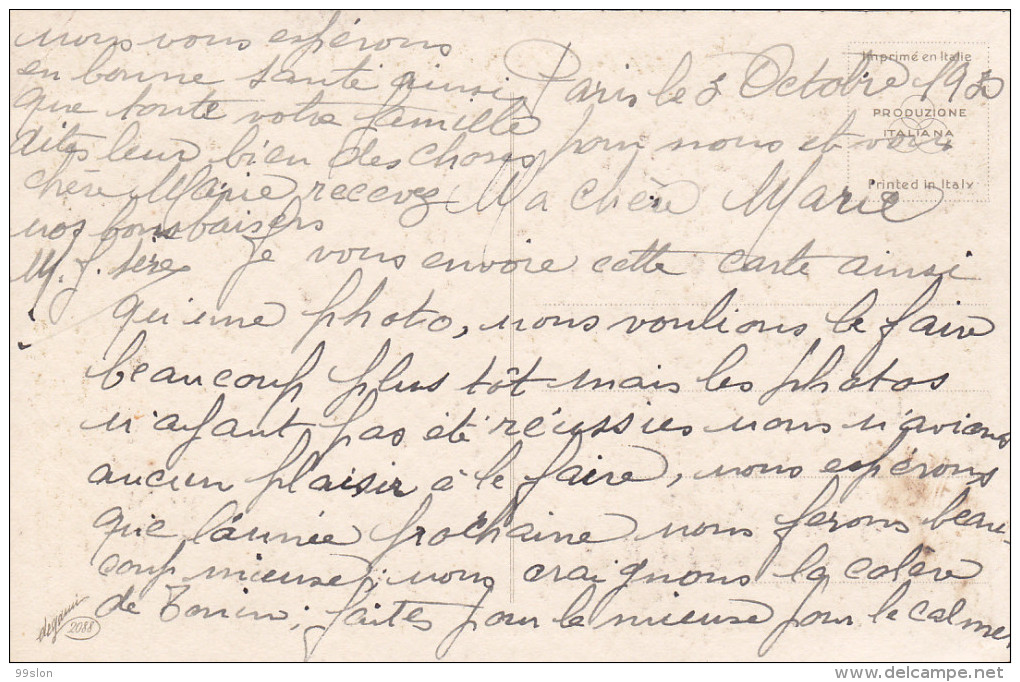 Paris le 3 Octobre 1930
Ma chère Marie
je vous envoie cette carte ainsi
qu'une photo, nous voulions le faire
beaucoup plus tôt mais les photos
n'ayant pas été réussies nous n'avions
aucun plaisir à le faire, nous espérons
que l'année prochaine nous ferons beau-
coup mieuse; nous craignons la colère
de Tonin; faites pour le mieuse pour le calmer,
nous vous espérons
en bonne santé ainsi
que toute votre famille
dites leur bien des choses pour nous et vous
chère Marie recevez
nos bons baisers
M. J.
Imprimé en Italie
PRODUZIONE
ITALIANA
Printed in Italy
degami
2088
99slon
www.delcampe.net